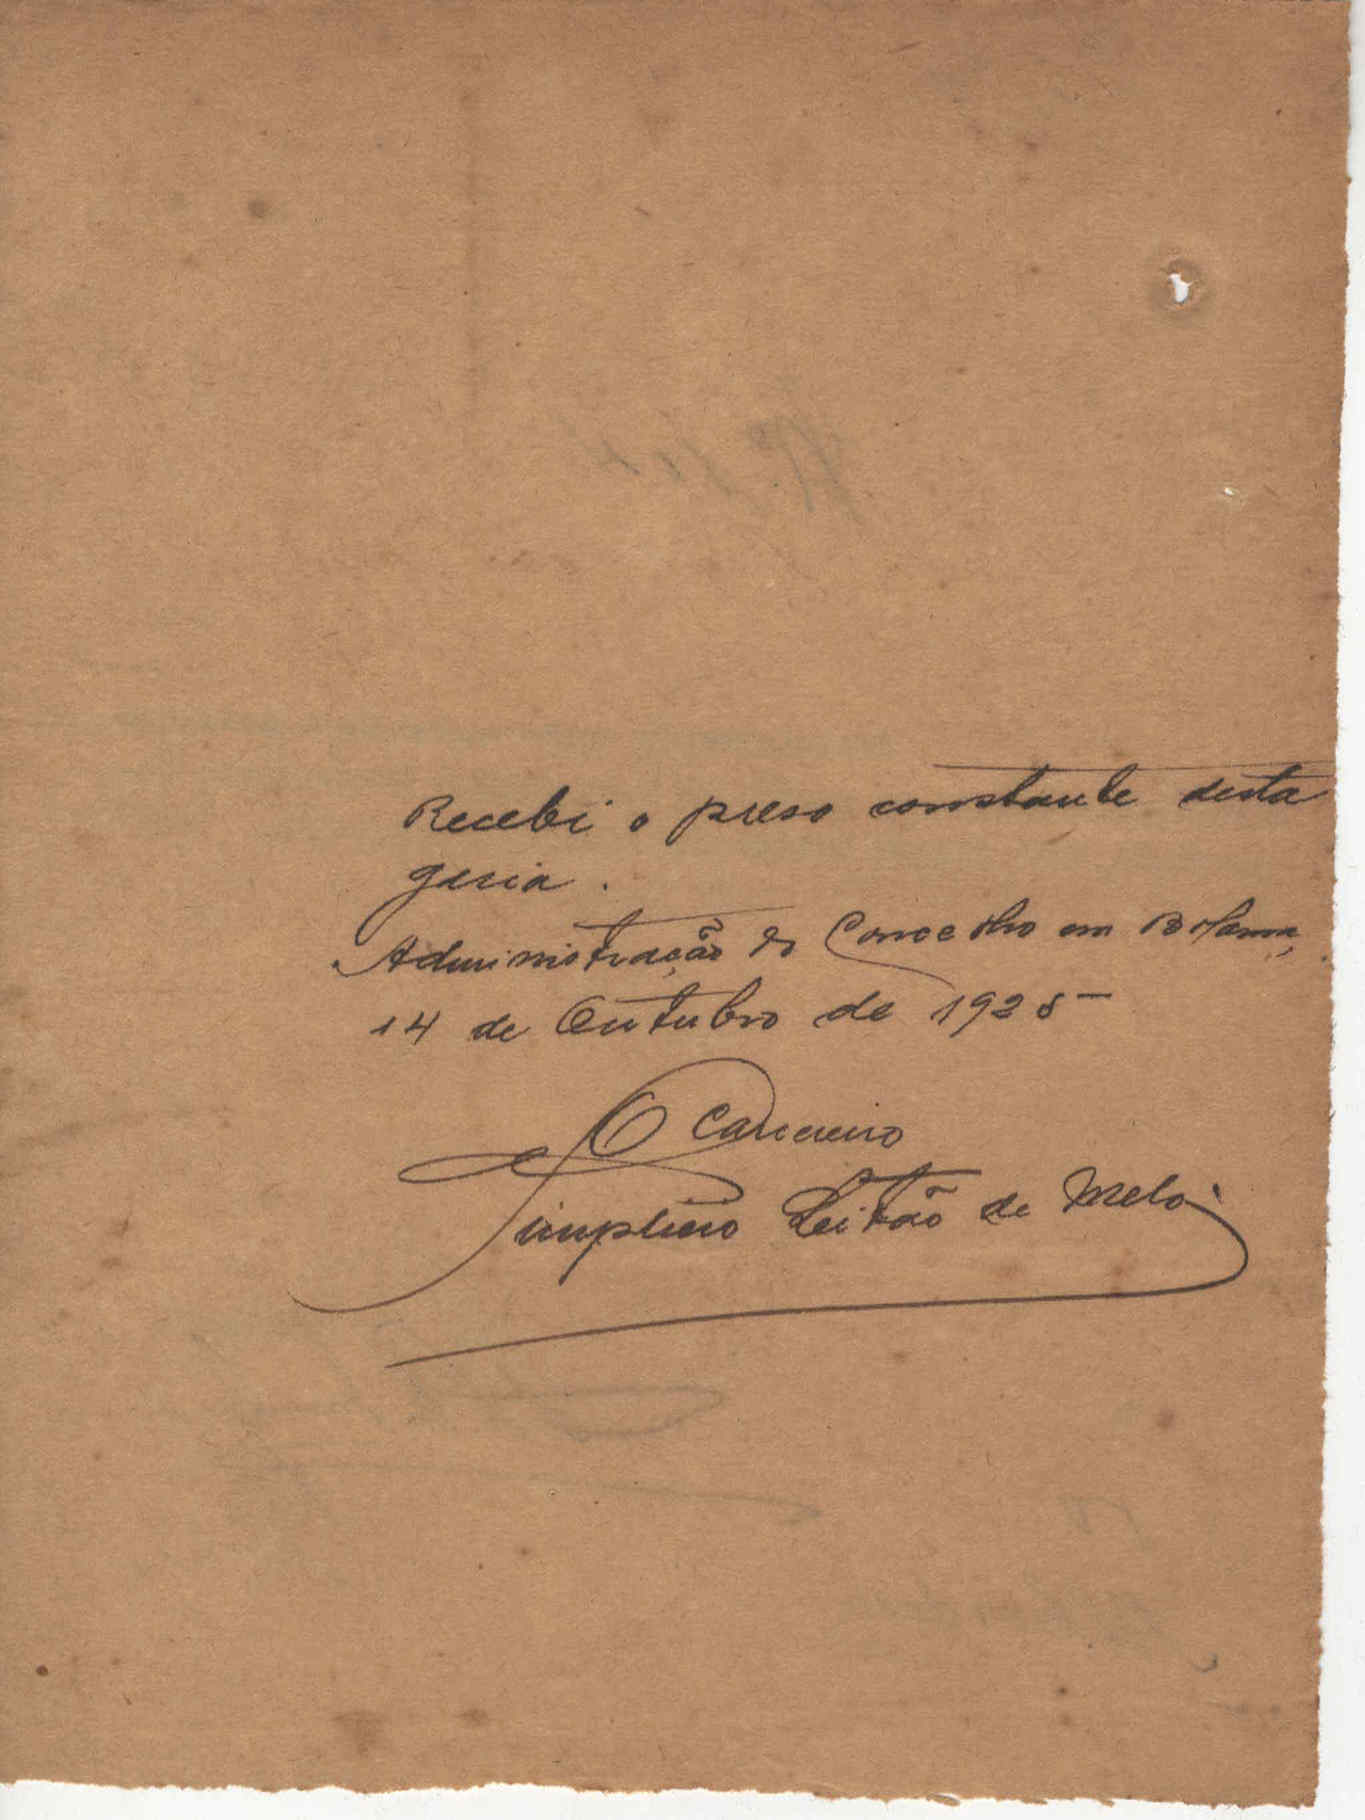 Recebi o preso constante desta
guia.
Administração do Concelho em Bolama,
14 de Outubro de 1925
O Carcereiro
Simplicio Leitão de Melo